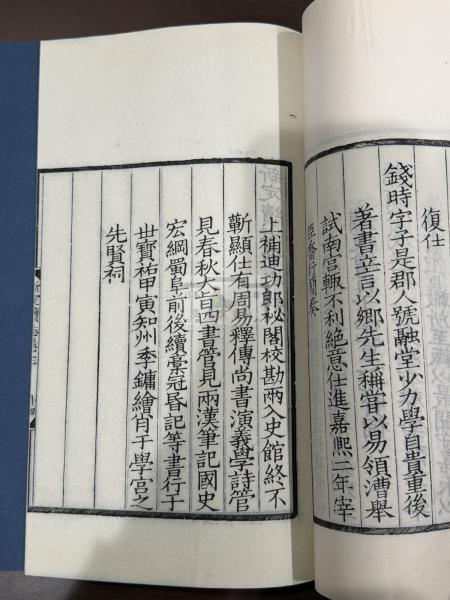 復仕
錢時字子是郡人號融堂少力學自貴重後
著書立言以鄉先生稱嘗以易領漕舉
試南宮輙不利絶意仕進嘉熙二年宰
臣喬行簡奏
上補迪功郎秘閣校勘兩入史館終不
蘄顯仕有周易釋傳尚書演義學詩管
見春秋大旨四書管見兩漢筆記國史
宏綱蜀阜前後續稾冠昏記等書行于
世寶祐甲寅知州季鏞繪肖于學宮之
先賢祠